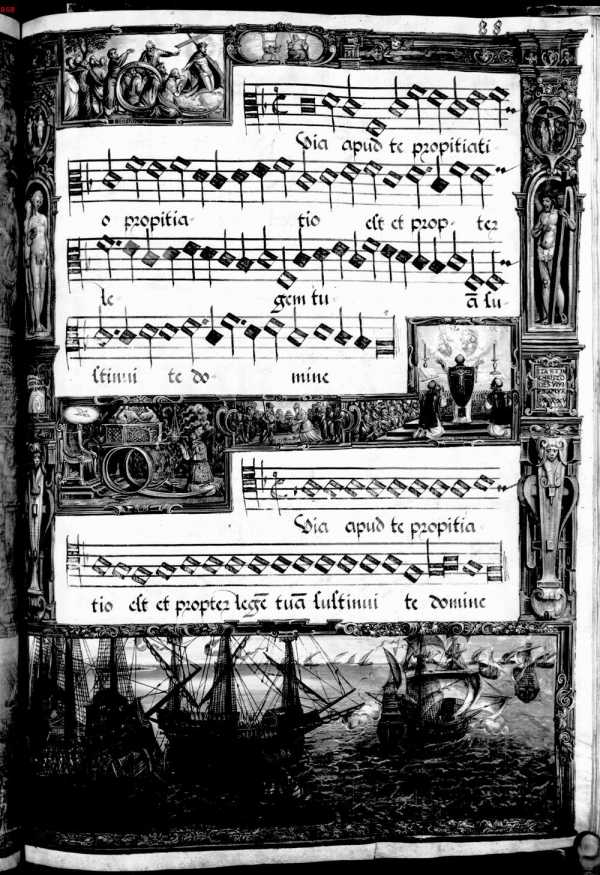 88
Quia apud te propitiati-
o propitia- tio est et prop- ter
le- gem tu- ā su-
stinui te do- mine
Quia apud te propitia-
tio est et propter legē tuā sustinui te domine